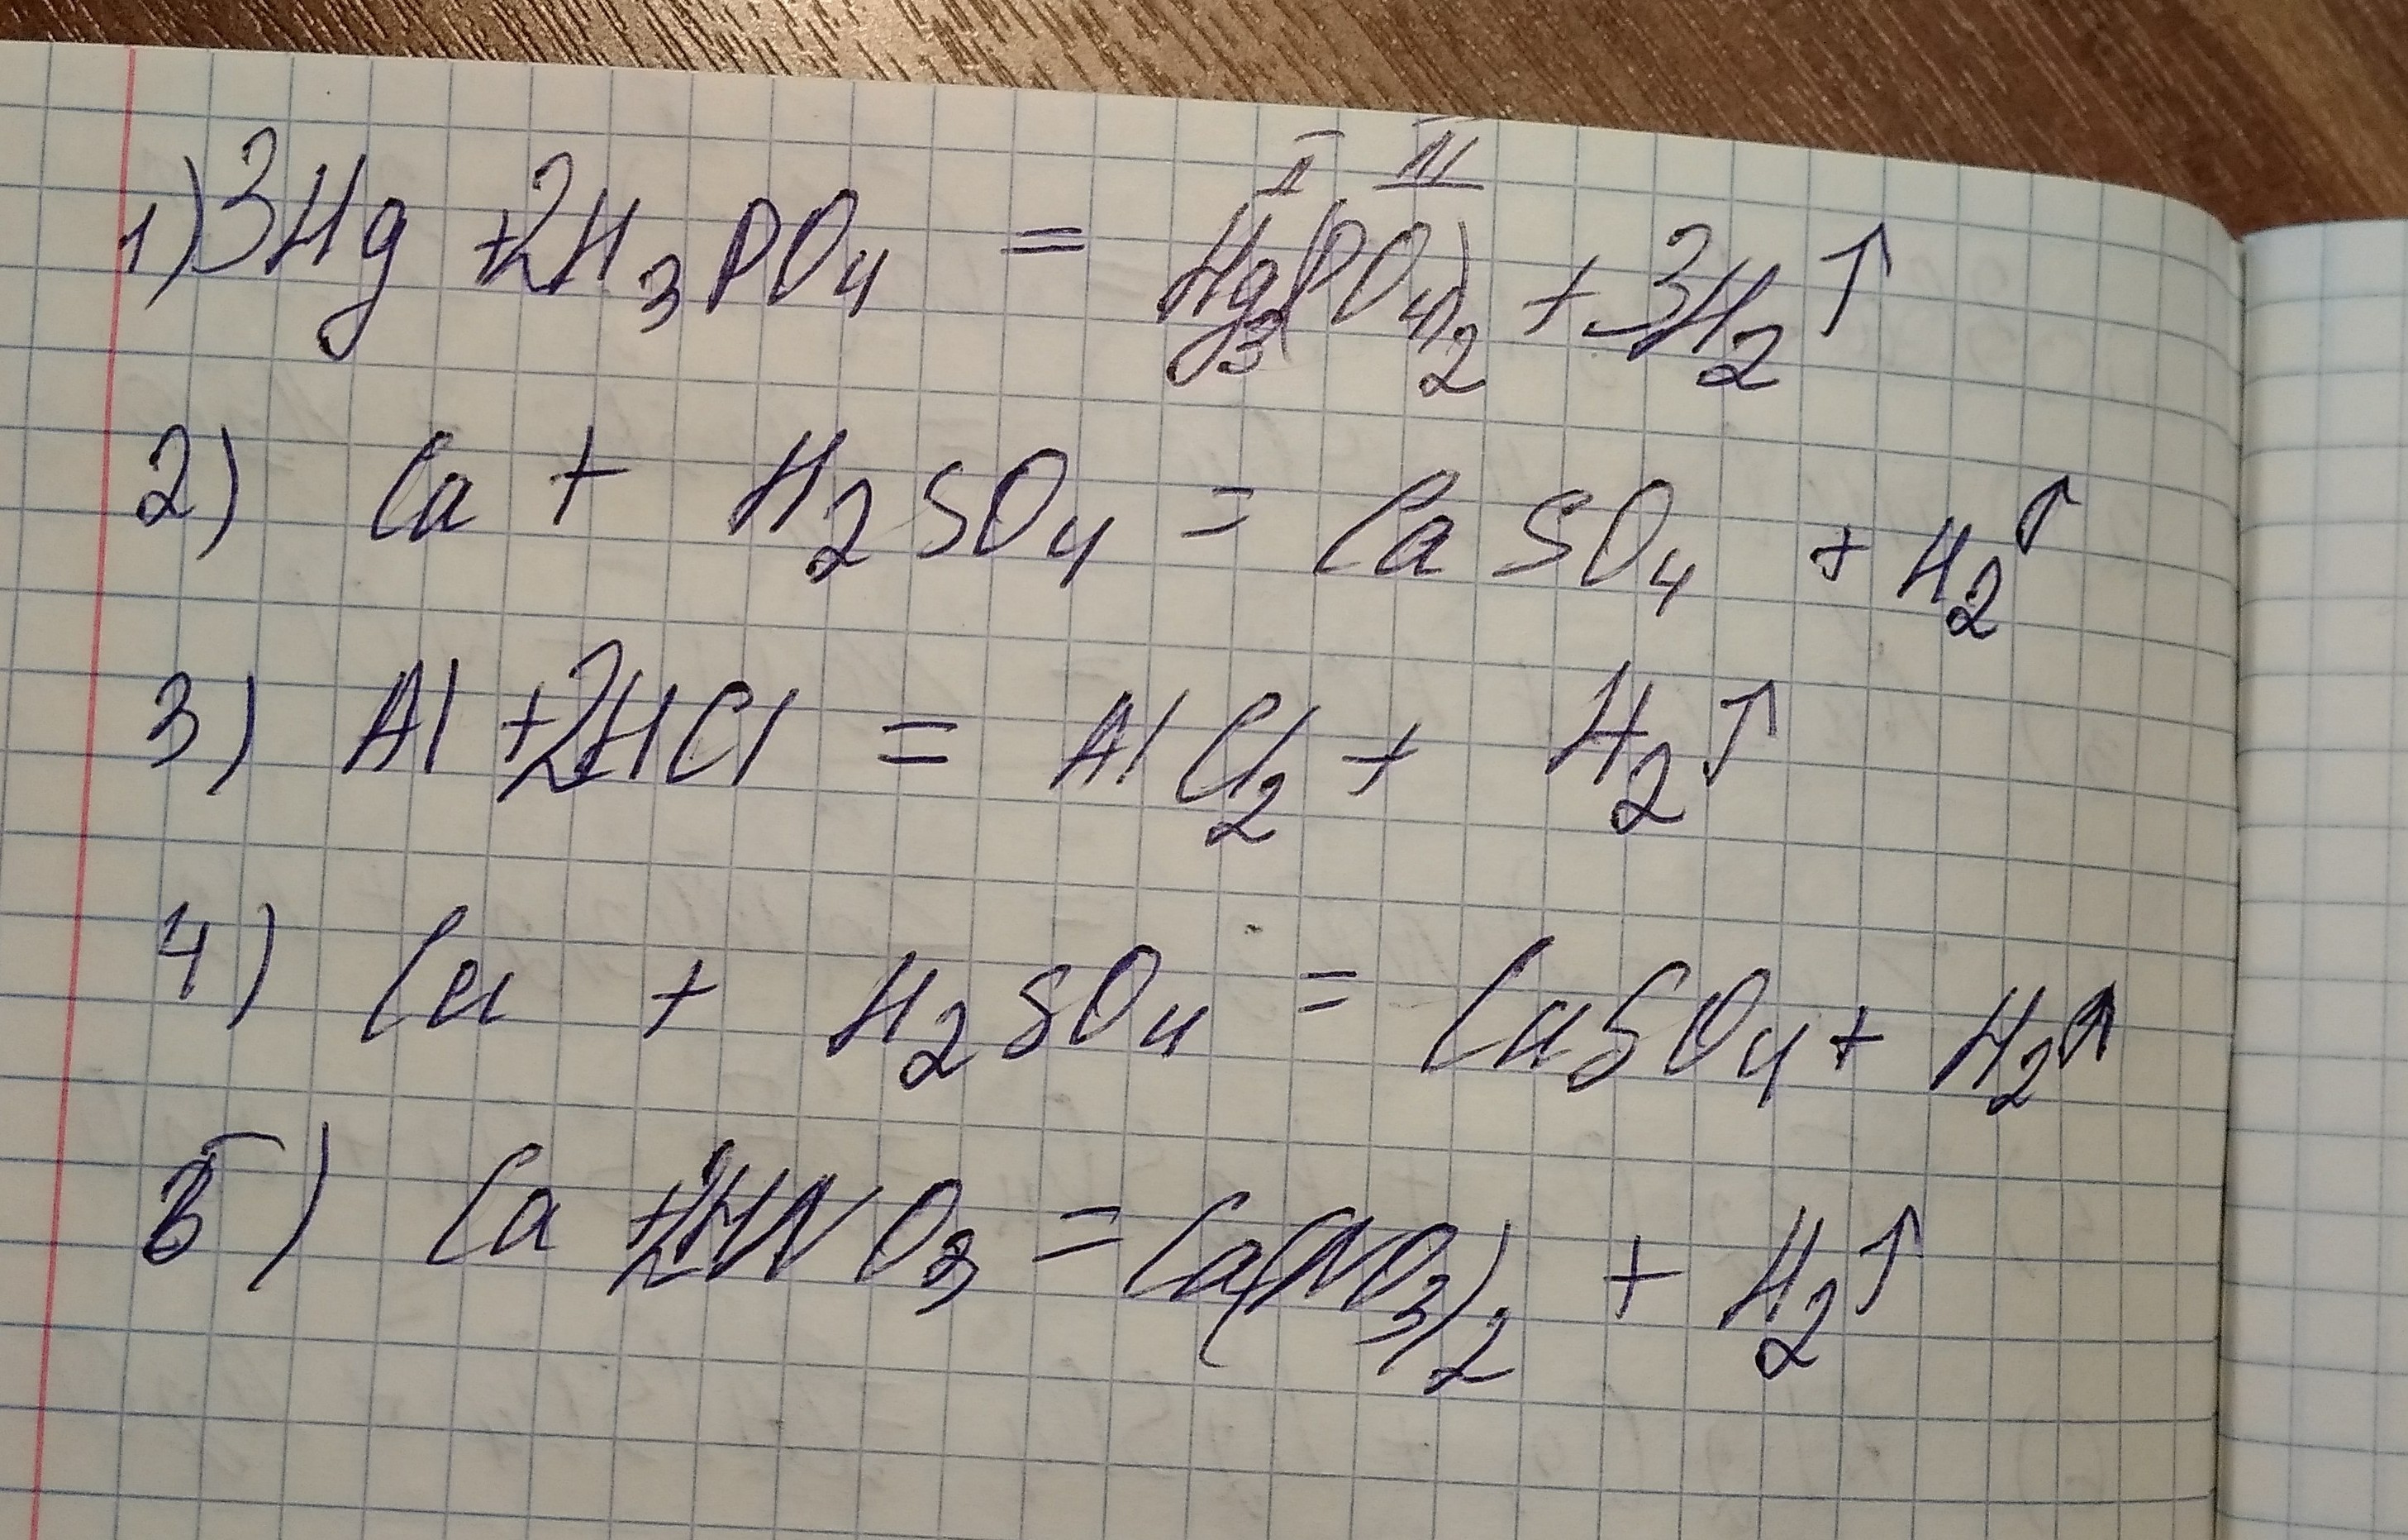 1) 3Hg + 2H₃PO₄ = Hg₃(PO₄)₂ + 3H₂↑
2) Ca + H₂SO₄ = CaSO₄ + H₂↑
3) Al + 2HCl = AlCl₂ + H₂↑
4) Cu + H₂SO₄ = CuSO₄ + H₂↑
5) Ca + 2HNO₃ = Ca(NO₃)₂ + H₂↑